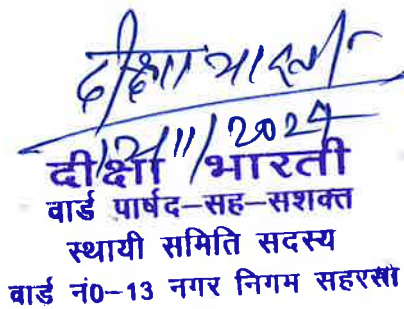 दीक्षा भारती
12/11/2024
दीक्षा भारती
वार्ड पार्षद-सह-सशक्त
स्थायी समिति सदस्य
वार्ड नं0-13 नगर निगम सहरसा